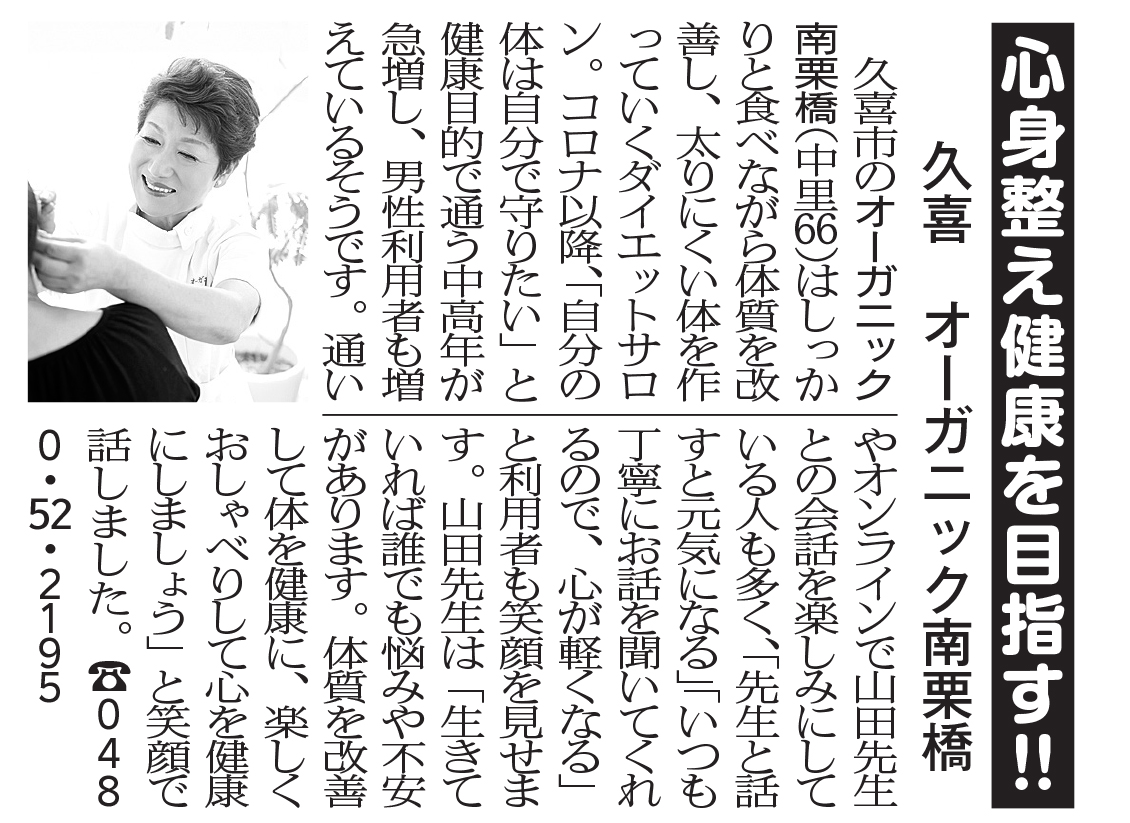 心身整え健康を目指す!!
久喜　オーガニック南栗橋
久喜市のオーガニック
南栗橋(中里66)はしっか
りと食べながら体質を改
善し、太りにくい体を作
っていくダイエットサロ
ン。コロナ以降、「自分の
体は自分で守りたい」と
健康目的で通う中高年が
急増し、男性利用者も増
えているそうです。通い
やオンラインで山田先生
との会話を楽しみにして
いる人も多く、「先生と話
すと元気になる」「いつも
丁寧にお話を聞いてくれ
るので、心が軽くなる」
と利用者も笑顔を見せま
す。山田先生は「生きて
いれば誰でも悩みや不安
があります。体質を改善
して体を健康に、楽しく
おしゃべりして心を健康
にしましょう」と笑顔で
話しました。☎048
0・52・2195